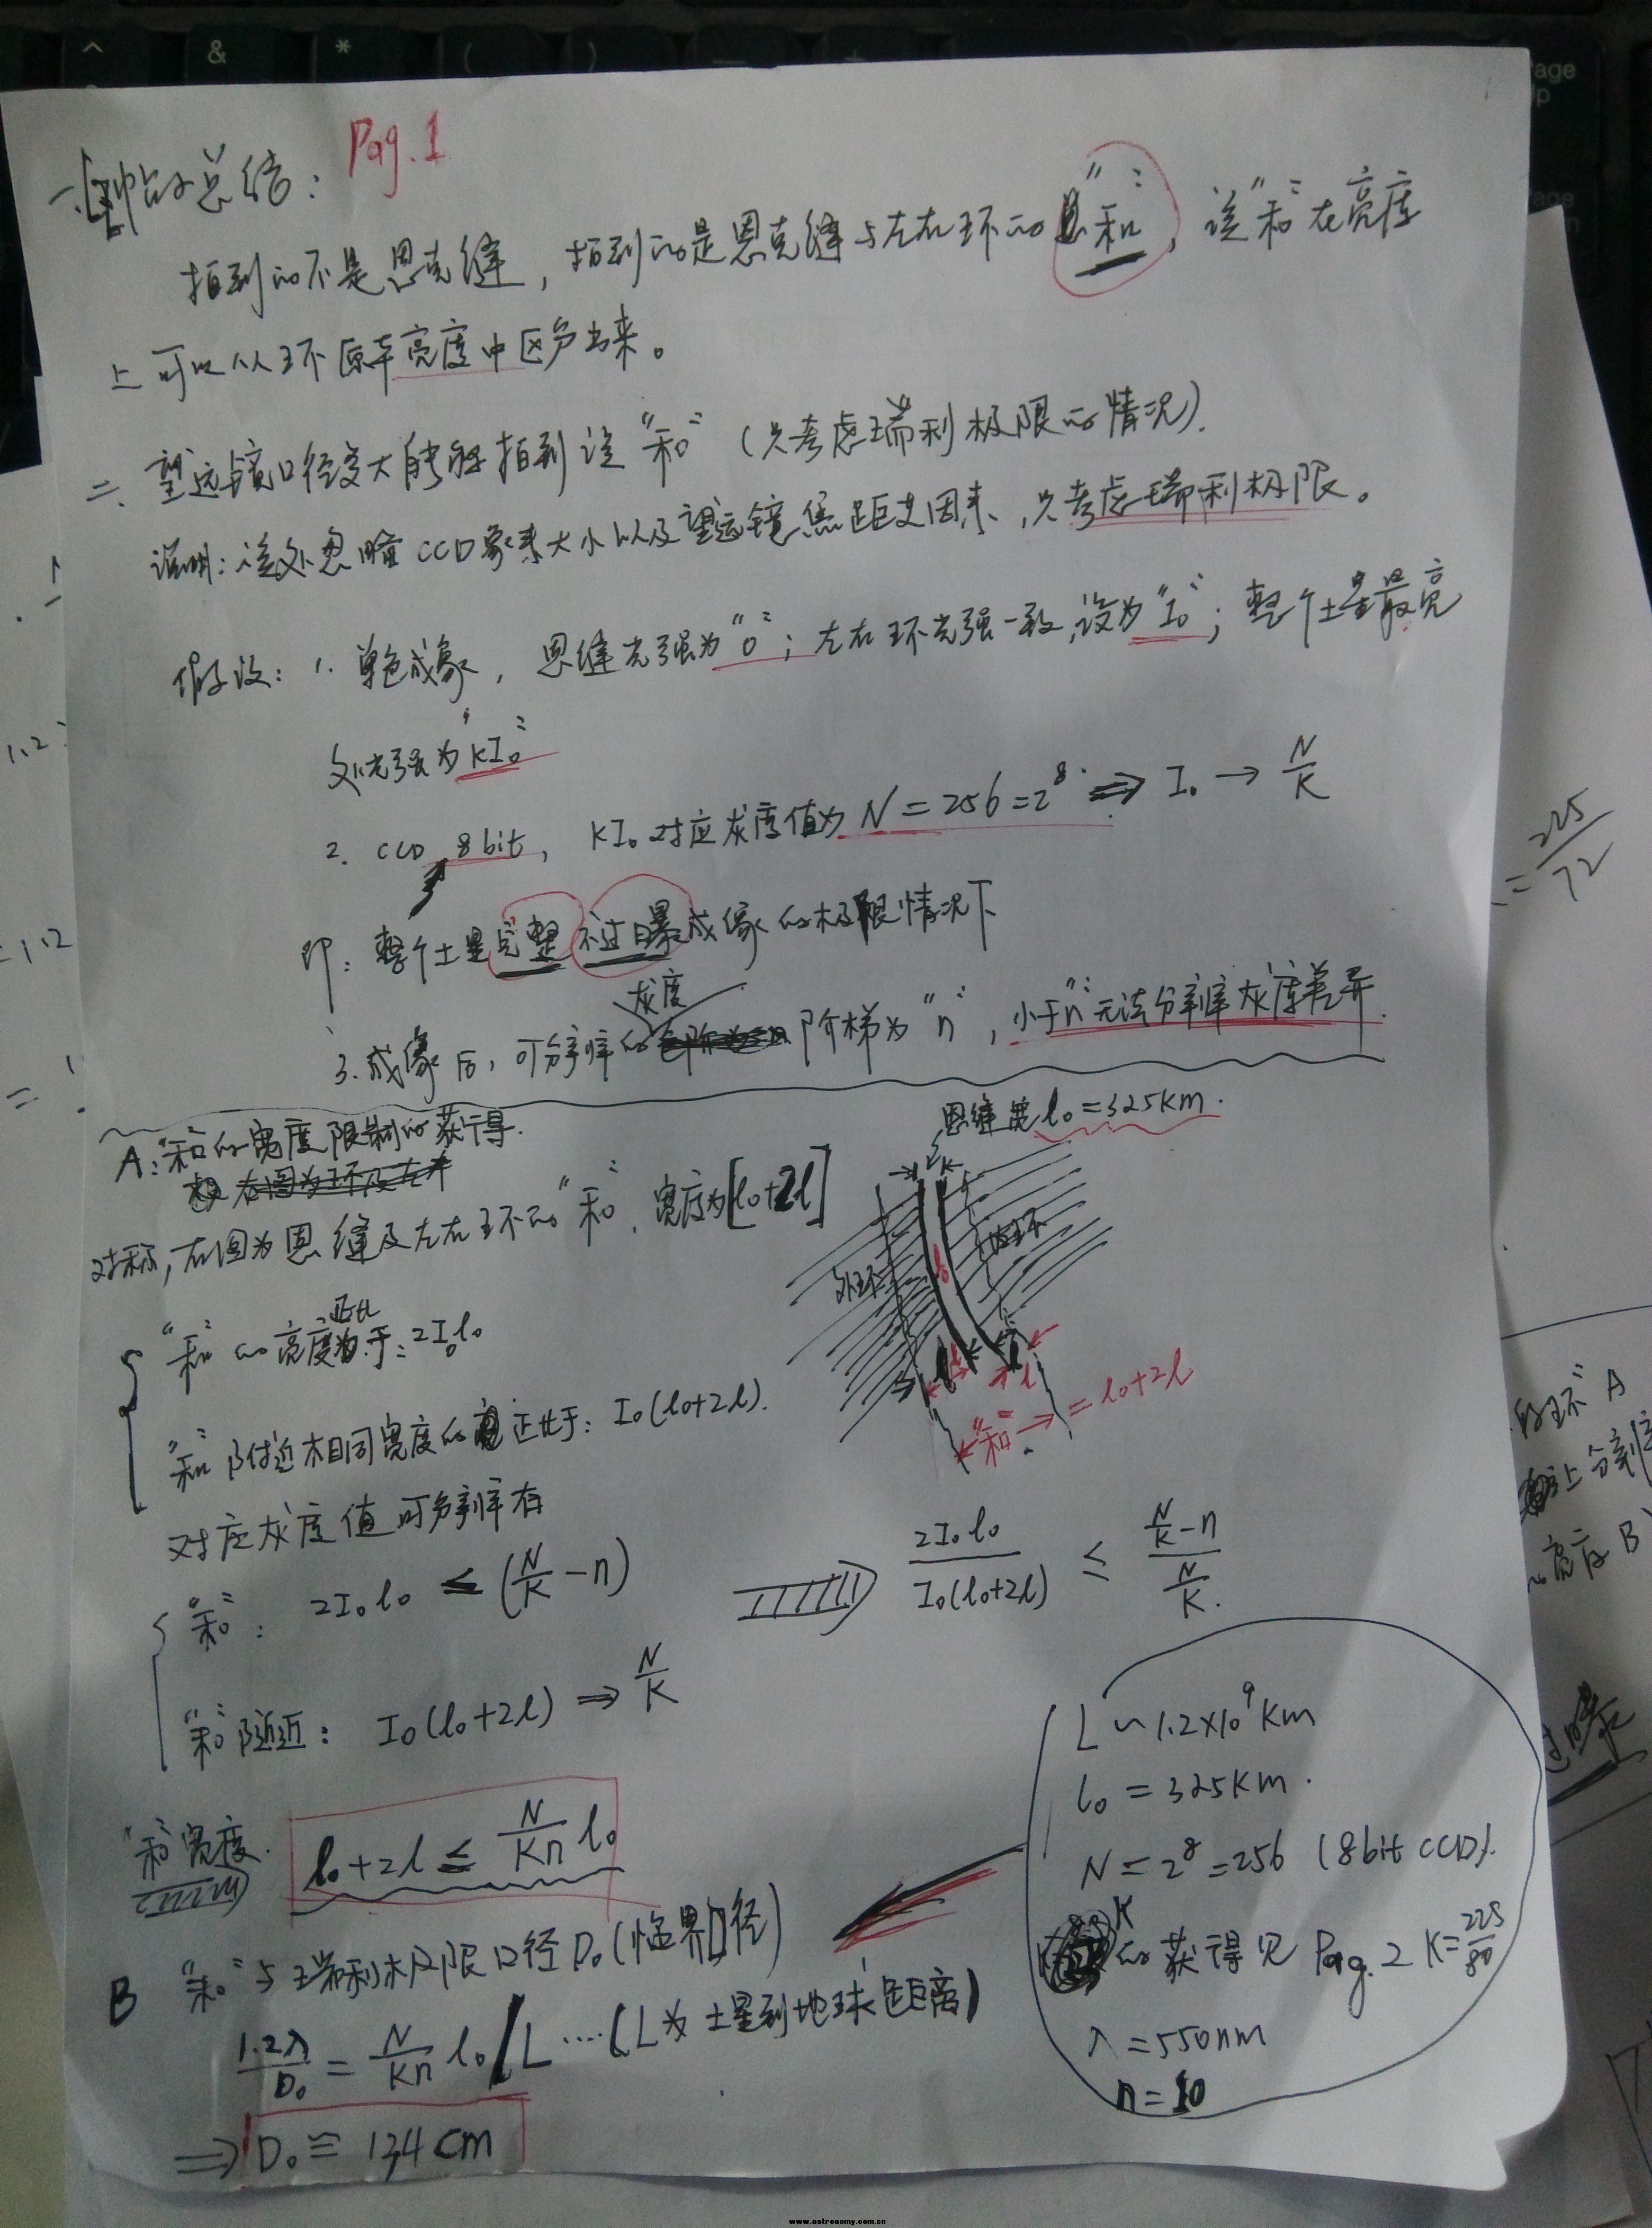 Pag.1
一、 总结:
拍到的不是恩克缝, 拍到的是恩克缝与左右环的"和", 该"和"在亮度
上可以从环原本亮度中区分出来。
二、望远镜口径多大能够拍到该"和"(只考虑瑞利极限的情况).
说明:该处忽略CCD象素大小以及望远镜焦距等因素,只考虑瑞利极限。
假设: 1. 单色成象, 恩缝光强为"0"; 左右环光强一致,设为"I₀"; 整个土星最亮
处光强为"KI₀"
2. CCD 8bit, KI₀对应灰度值为 N=256=2⁸ ⇒ I₀ → N/K
即: 整个土星完整不过曝成像的极限情况下
灰度
3. 成像后, 可分辨的 阶梯为"n", 小于"n"无法分辨灰度差异.
恩缝宽 l₀=325Km.
A: "和"的宽度限制的获得.
对称, 右图为恩缝及左右环的"和", 宽度为[l₀+2l]
外环
"和"的亮度正比于: 2I₀l₀
"和"附近相同宽度的 正比于: I₀(l₀+2l).
"和" → = l₀+2l
对应灰度值可分辨有
"和": 2I₀l₀ ≤ (N/K - n)
2I₀l₀ / I₀(l₀+2l) ≤ (N/K - n) / (N/K).
"和"附近: I₀(l₀+2l) ⇒ N/K
"和"宽度. l₀+2l ≤ N/Kn l₀
B "和"与瑞利极限口径D₀(临界口径)
1.2λ/D₀ = N/Kn l₀ / L ····(L为土星到地球距离)
⇒ D₀ ≅ 13.4cm
L ~ 1.2×10⁹Km
l₀ = 325Km.
N = 2⁸ = 256 (8bit CCD).
K的获得见Pag.2 K=225/80
λ = 550nm
n = 10
= 225/72
1.2
= 1.2
=
的环A
上分辨
B
过曝
^
&
*
(
)
Page
Up
www.astronomy.com.cn